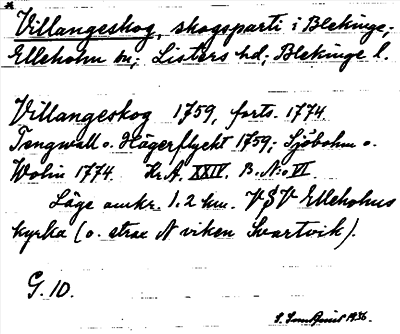 Villangeskog, skogsparti i Blekinge;
Elleholm sn; Listers hd; Blekinge l.
Villangeskog 1759, forts. 1774.
Tengwall o. Hägerflycht 1759; Sjöbohm o.
Wolin 1774. Kr. A. XXIV. B. N:o VI.
Läge omkr. 1.2 km. VSV Elleholms
kyrka (o. strax N viken Svartvik).
G. 10.
1936.